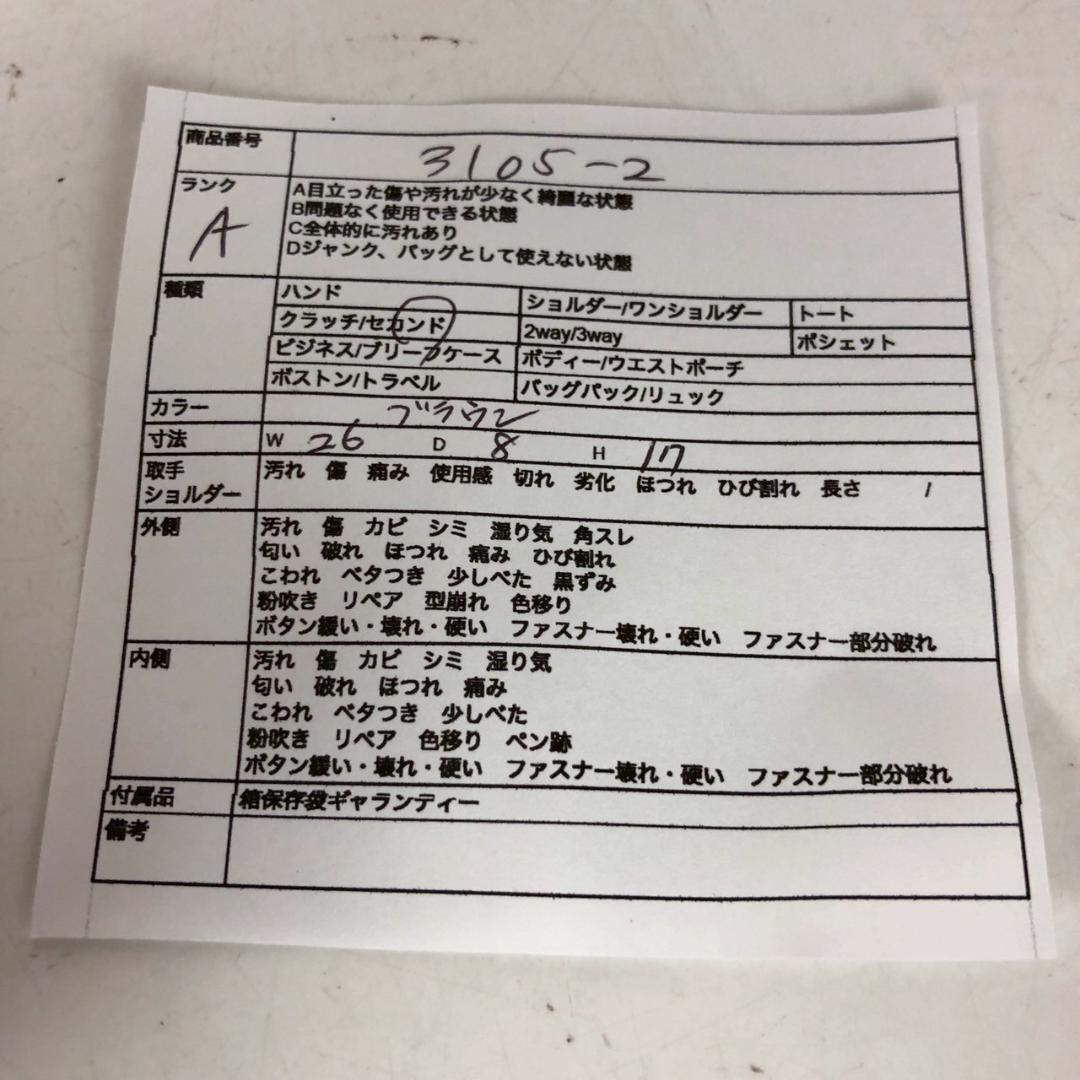 商品番号 3105-2
ランク A
A目立った傷や汚れが少なく綺麗な状態
B問題なく使用できる状態
C全体的に汚れあり
Dジャンク、バッグとして使えない状態
種類
ハンド ショルダー/ワンショルダー トート
クラッチ/セカンド 2way/3way ポシェット
ビジネス/ブリーフケース ボディー/ウエストポーチ
ボストン/トラベル バッグパック/リュック
カラー ブラウン
寸法 W 26 D 8 H 17
取手 汚れ 傷 痛み 使用感 切れ 劣化 ほつれ ひび割れ 長さ /
ショルダー
外側 汚れ 傷 カビ シミ 湿り気 角スレ
匂い 破れ ほつれ 痛み ひび割れ
こわれ ベタつき 少しべた 黒ずみ
粉吹き リペア 型崩れ 色移り
ボタン緩い・壊れ・硬い ファスナー壊れ・硬い ファスナー部分破れ
内側 汚れ 傷 カビ シミ 湿り気
匂い 破れ ほつれ 痛み
こわれ ベタつき 少しべた
粉吹き リペア 色移り ペン跡
ボタン緩い・壊れ・硬い ファスナー壊れ・硬い ファスナー部分破れ
付属品 箱保存袋ギャランディー
備考